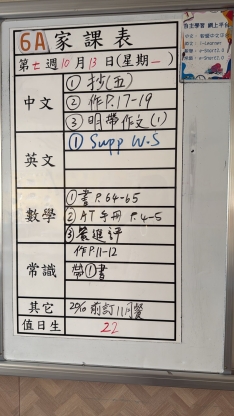 6A 家課表
第七週10月13日(星期一)
中文
① 抄(五)
② 作P.17-19
③ 明帶作文(1)
英文
① Supp W.S
數學
① 書 P.64-65
② AT手冊 P.4-5
③ 簽進評
常識
作P.11-12
帶①書
其它
29/10 前訂11月餐
值日生
22
自主學習 網上平台